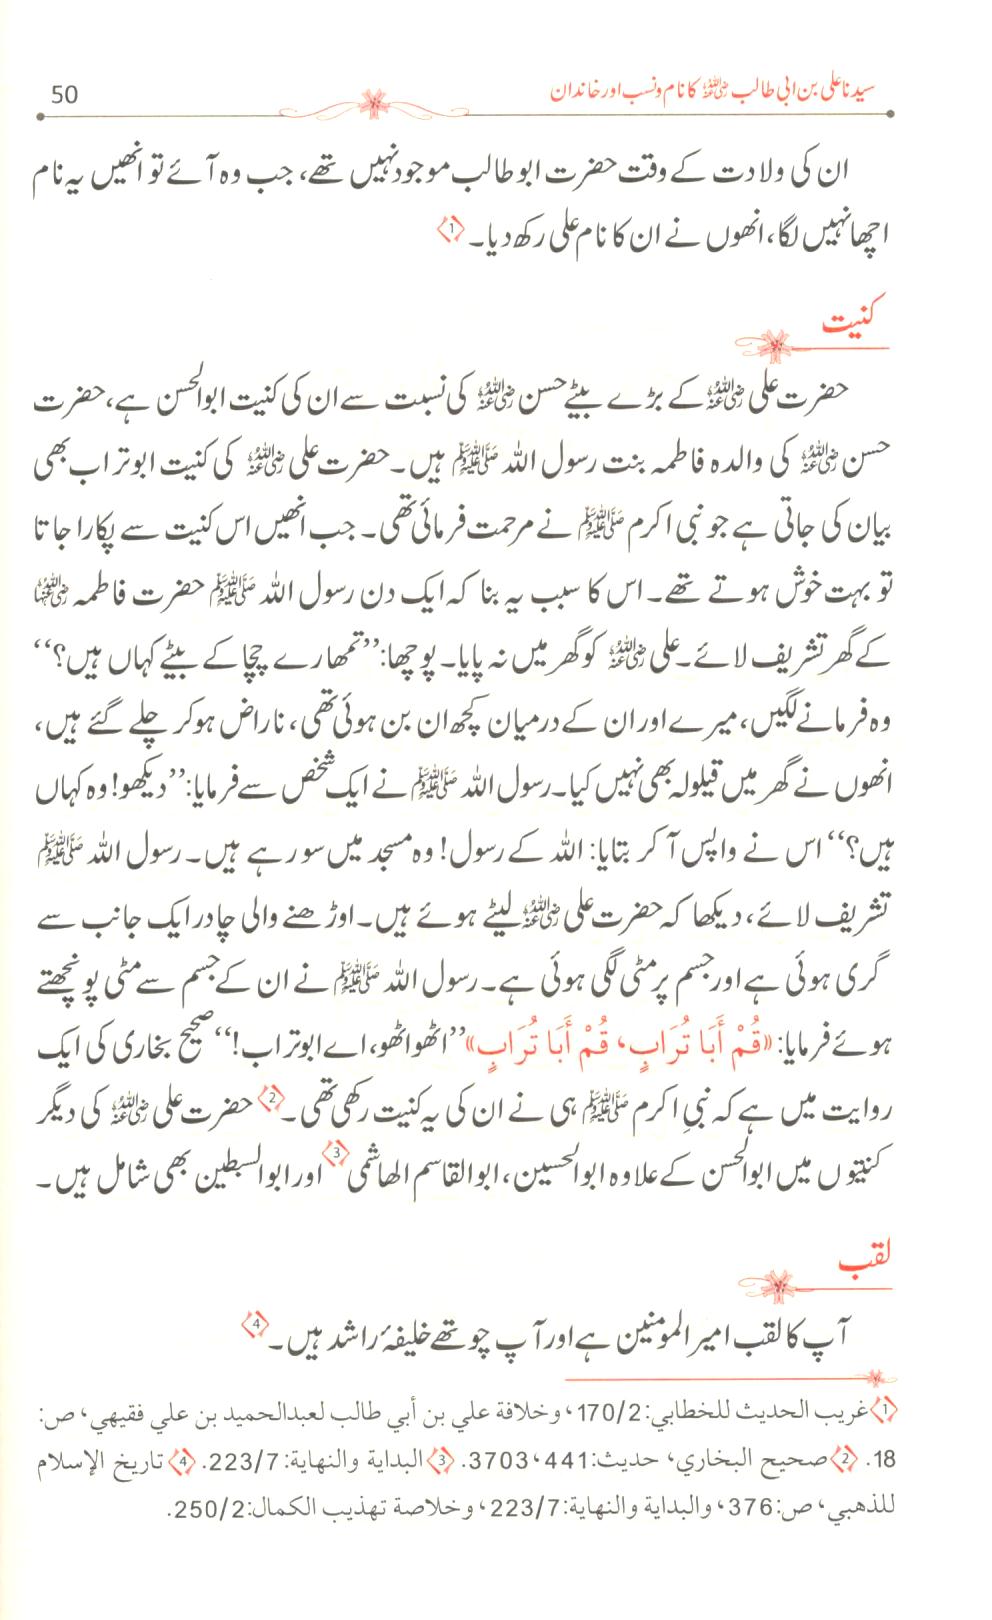 سیدنا علی بن ابی طالب ﷛ کا نام و نسب اور خاندان
50
ان کی ولادت کے وقت حضرت ابو طالب موجود نہیں تھے، جب وہ آئے تو انھیں یہ نام
اچھا نہیں لگا، انھوں نے ان کا نام علی رکھ دیا۔ 1
کنیت
حضرت علی رضی اللہ عنہ کے بڑے بیٹے حسن رضی اللہ عنہ کی نسبت سے ان کی کنیت ابوالحسن ہے، حضرت
حسن رضی اللہ عنہ کی والدہ فاطمہ بنت رسول اللہ ﷺ ہیں۔ حضرت علی رضی اللہ عنہ کی کنیت ابوتراب بھی
بیان کی جاتی ہے جو نبی اکرم ﷺ نے مرحمت فرمائی تھی۔ جب انھیں اس کنیت سے پکارا جاتا
تو بہت خوش ہوتے تھے۔ اس کا سبب یہ بنا کہ ایک دن رسول اللہ ﷺ حضرت فاطمہ رضی اللہ عنہا
کے گھر تشریف لائے۔ علی رضی اللہ عنہ کو گھر میں نہ پایا۔ پوچھا: ’’تمھارے چچا کے بیٹے کہاں ہیں؟‘‘
وہ فرمانے لگیں، میرے اور ان کے درمیان کچھ ان بن ہوئی تھی، ناراض ہوکر چلے گئے ہیں،
انھوں نے گھر میں قیلولہ بھی نہیں کیا۔ رسول اللہ ﷺ نے ایک شخص سے فرمایا: ’’دیکھو! وہ کہاں
ہیں؟‘‘ اس نے واپس آ کر بتایا: اللہ کے رسول! وہ مسجد میں سو رہے ہیں۔ رسول اللہ ﷺ
تشریف لائے، دیکھا کہ حضرت علی رضی اللہ عنہ لیٹے ہوئے ہیں۔ اوڑھنے والی چادر ایک جانب سے
گری ہوئی ہے اور جسم پر مٹی لگی ہوئی ہے۔ رسول اللہ ﷺ نے ان کے جسم سے مٹی پونچھتے
ہوئے فرمایا: «قُمْ أَبَا تُرَابٍ، قُمْ أَبَا تُرَابٍ» ’’اٹھو اٹھو، اے ابوتراب!‘‘ صحیح بخاری کی ایک
روایت میں ہے کہ نبیِ اکرم ﷺ ہی نے ان کی یہ کنیت رکھی تھی۔ 2 حضرت علی رضی اللہ عنہ کی دیگر
کنیتوں میں ابوالحسن کے علاوہ ابوالحسین، ابوالقاسم الھاشمی 3 اور ابوالسبطین بھی شامل ہیں۔
لقب
آپ کا لقب امیر المومنین ہے اور آپ چوتھے خلیفۂ راشد ہیں۔ 4
1 غريب الحديث للخطابي: 170/2، وخلافة علي بن أبي طالب لعبدالحميد بن علي فقيهي، ص:
18. 2 صحيح البخاري، حديث: 441، 3703. 3 البداية والنهاية: 223/7. 4 تاريخ الإسلام
للذهبي، ص: 376، والبداية والنهاية: 223/7، وخلاصة تهذيب الكمال: 250/2.